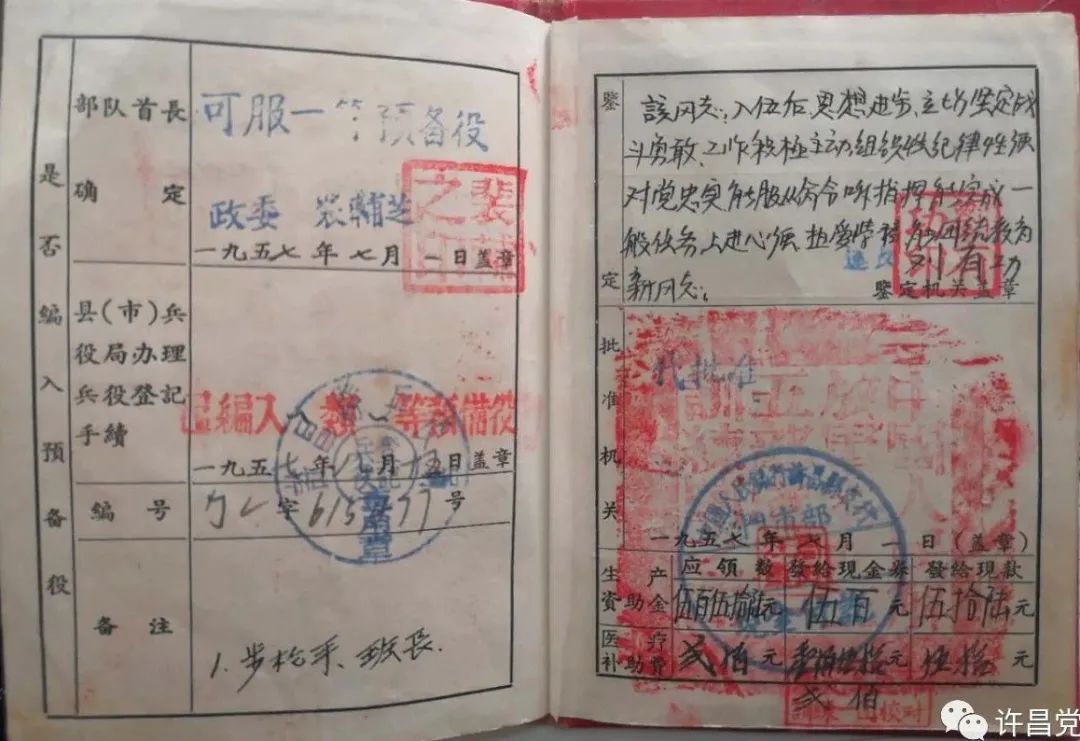 是否编入预备役
部队首長
确定
可服一等预备役
政委 裴輔芝
裴輔
之印
一九五七年七月一日盖章
县(市)兵
役局办理
兵役登記
手續
已編入一類預備役
一九五七年 月 日盖章
编号
字 号
备注
1.步枪手、班長.
鉴定
該同志:入伍后思想进步、立场坚定战
斗勇敢、工作积极主动组织性纪律性强
对党忠实能服从命令听指挥能完成一
般任务上进心强 热爱学习能团结教育
新同志;
刘有功
鉴定机关盖章
批准机关
代批准
中國人民銀行許昌縣支行
門市部
一九五七年七月一日(盖章)
生产
資助金
应领数
發給現金券
發給現款
伍百伍拾陆元
伍百元
伍拾陆元
医疗
补助费
贰佰元
元
伍拾元
贰佰
校对
许昌党